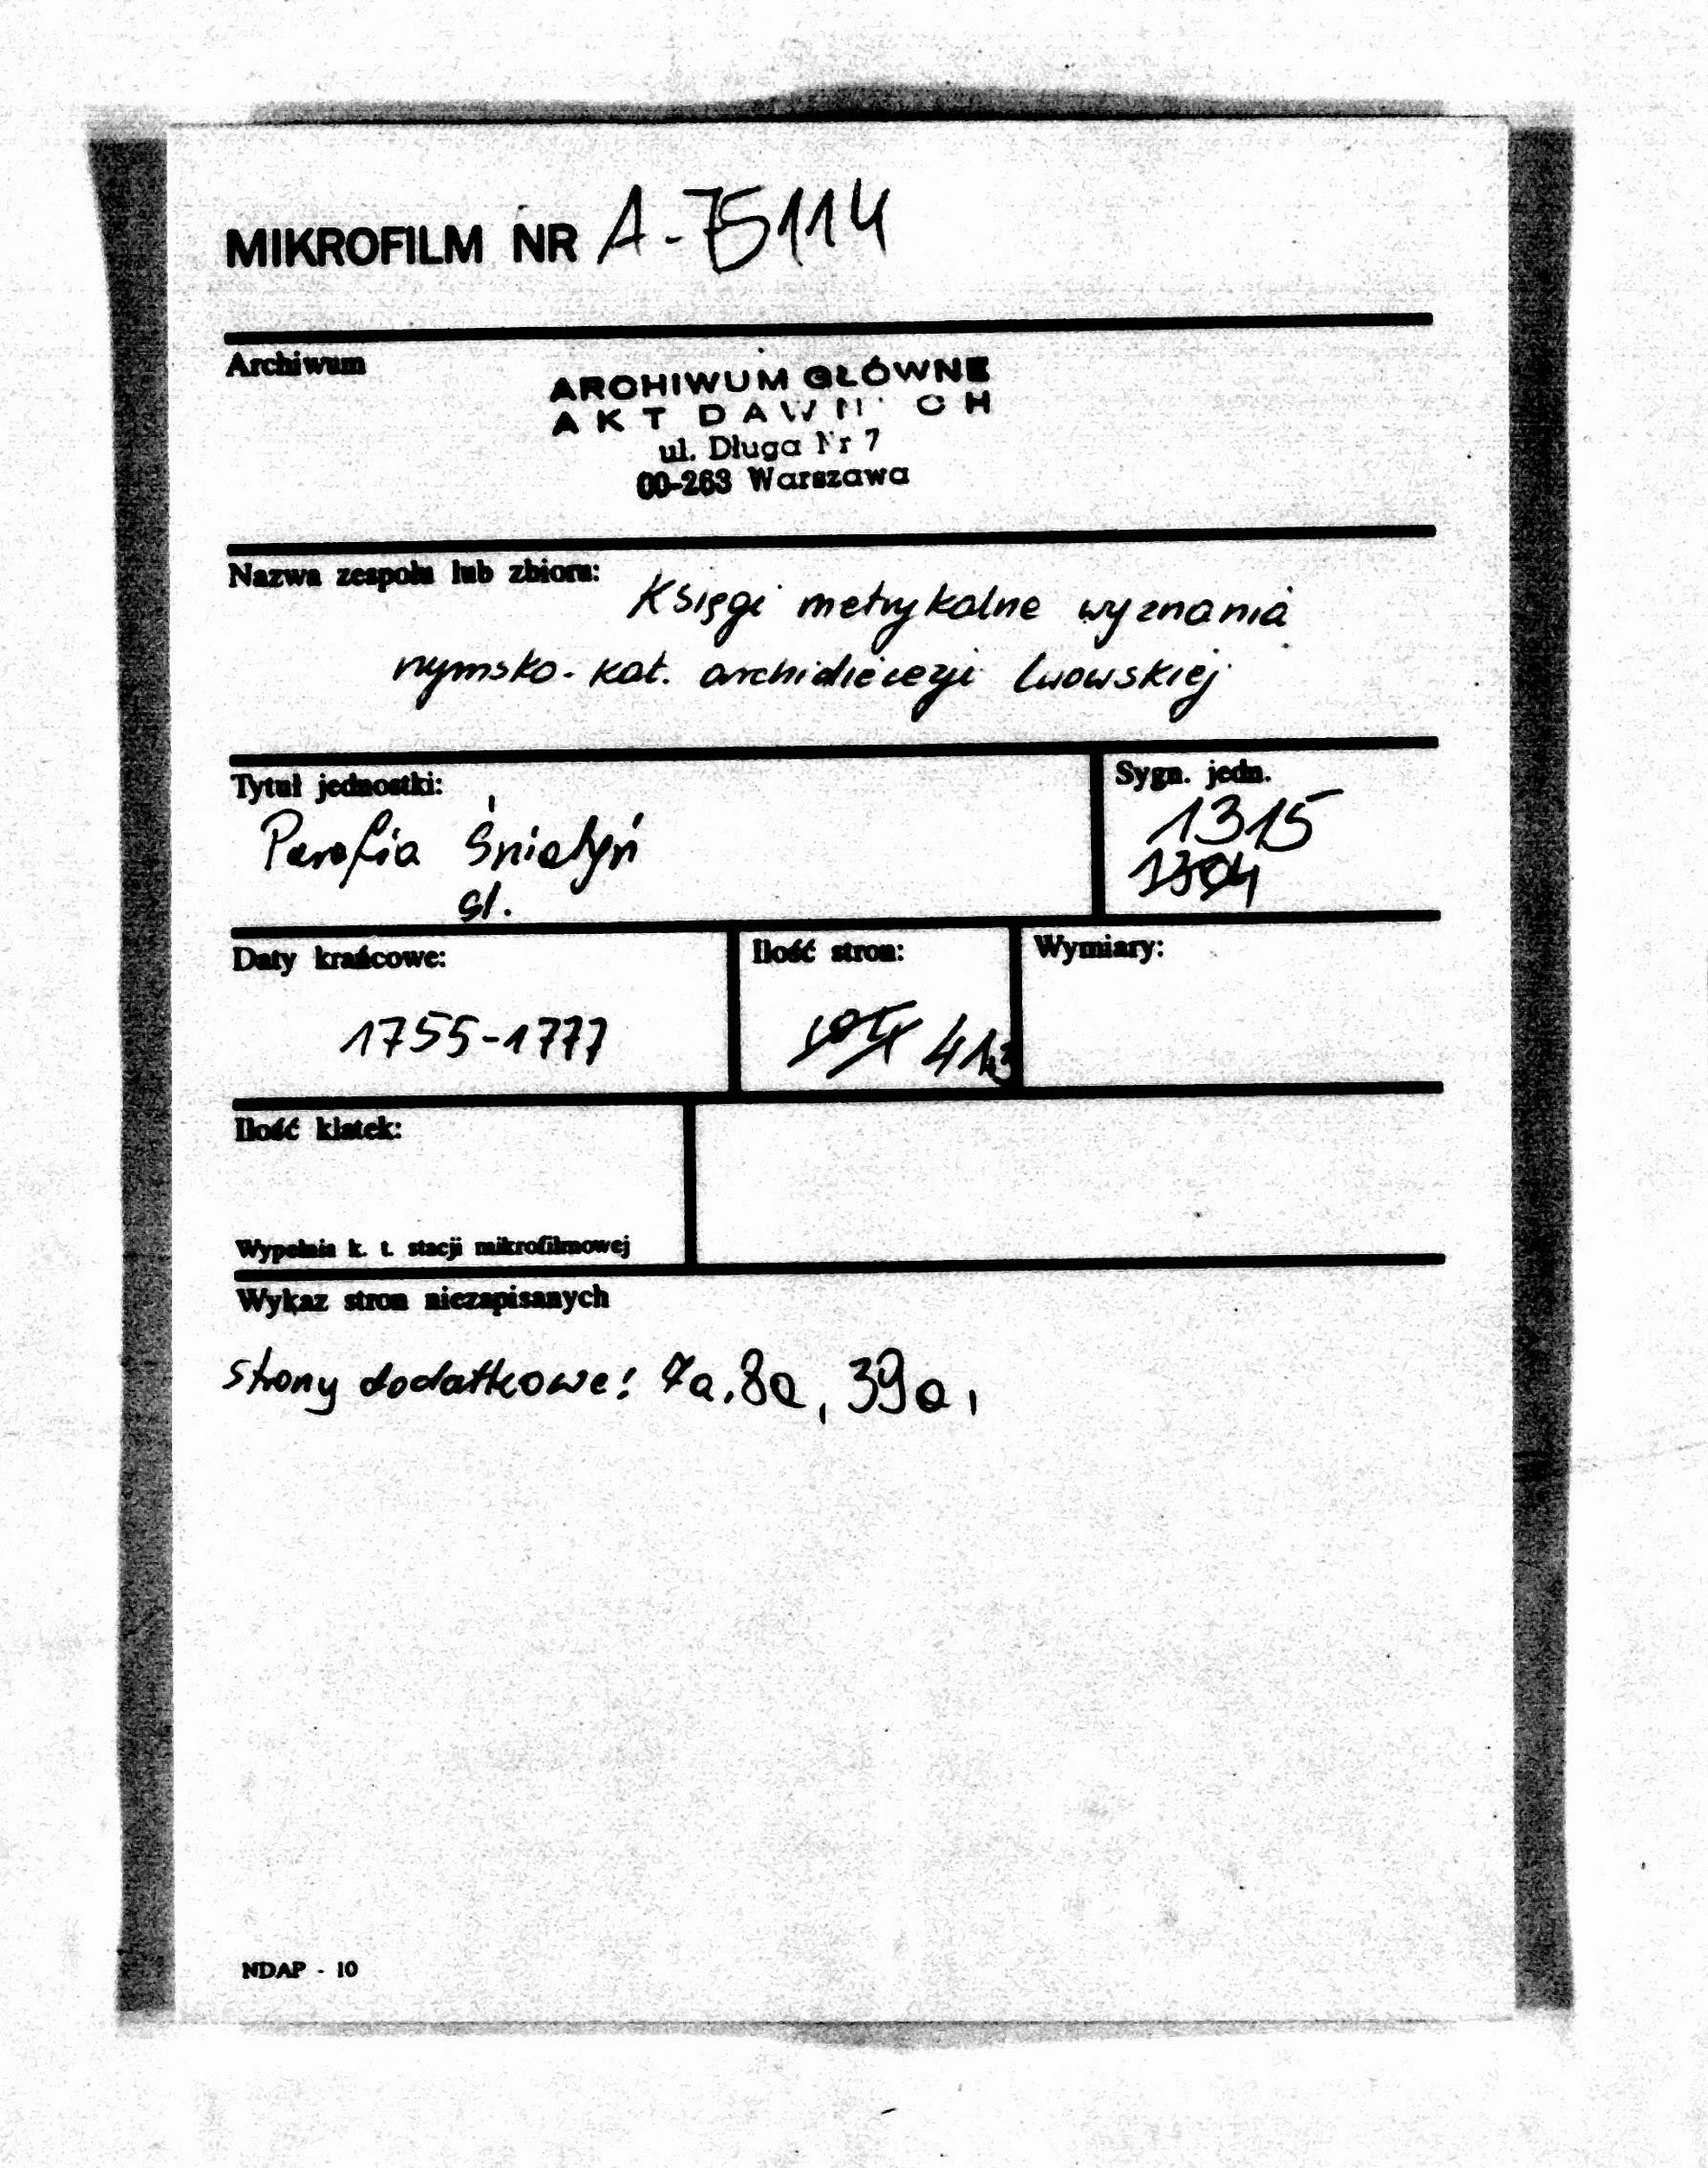 MIKROFILM NR A-75114
Archiwum
ARCHIWUM GŁÓWNE
AKT DAWNYCH
ul. Długa Nr 7
00-263 Warszawa
Nazwa zespołu lub zbioru:
Księgi metrykalne wyznania
rzymsko-kat. archidiecezji Lwowskiej
Tytuł jednostki:
Parafia Śniatyń
Sygn. jedn.
1315
1304
Daty krańcowe:
1755-1777
Ilość stron:
413
Wymiary:
Ilość klatek:
Wypełnia k. t. stacji mikrofilmowej
Wykaz stron niezapisanych
strony dodatkowe: 7a, 8a, 39a,
NDAP - 10